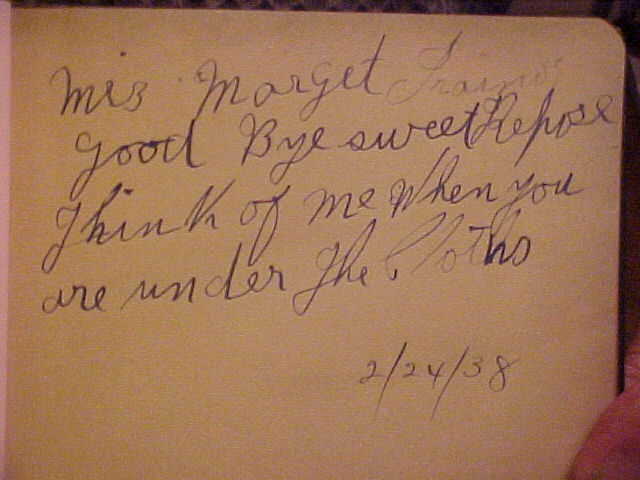 Mis Marget
good Bye sweet Repose
Think of me When you
are under The Cloths
2/24/38